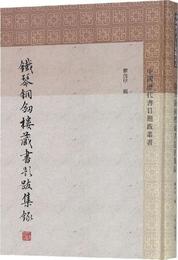 中國歷代書目題跋叢書
鐵琴銅劍樓藏書題跋集錄
瞿良士 輯